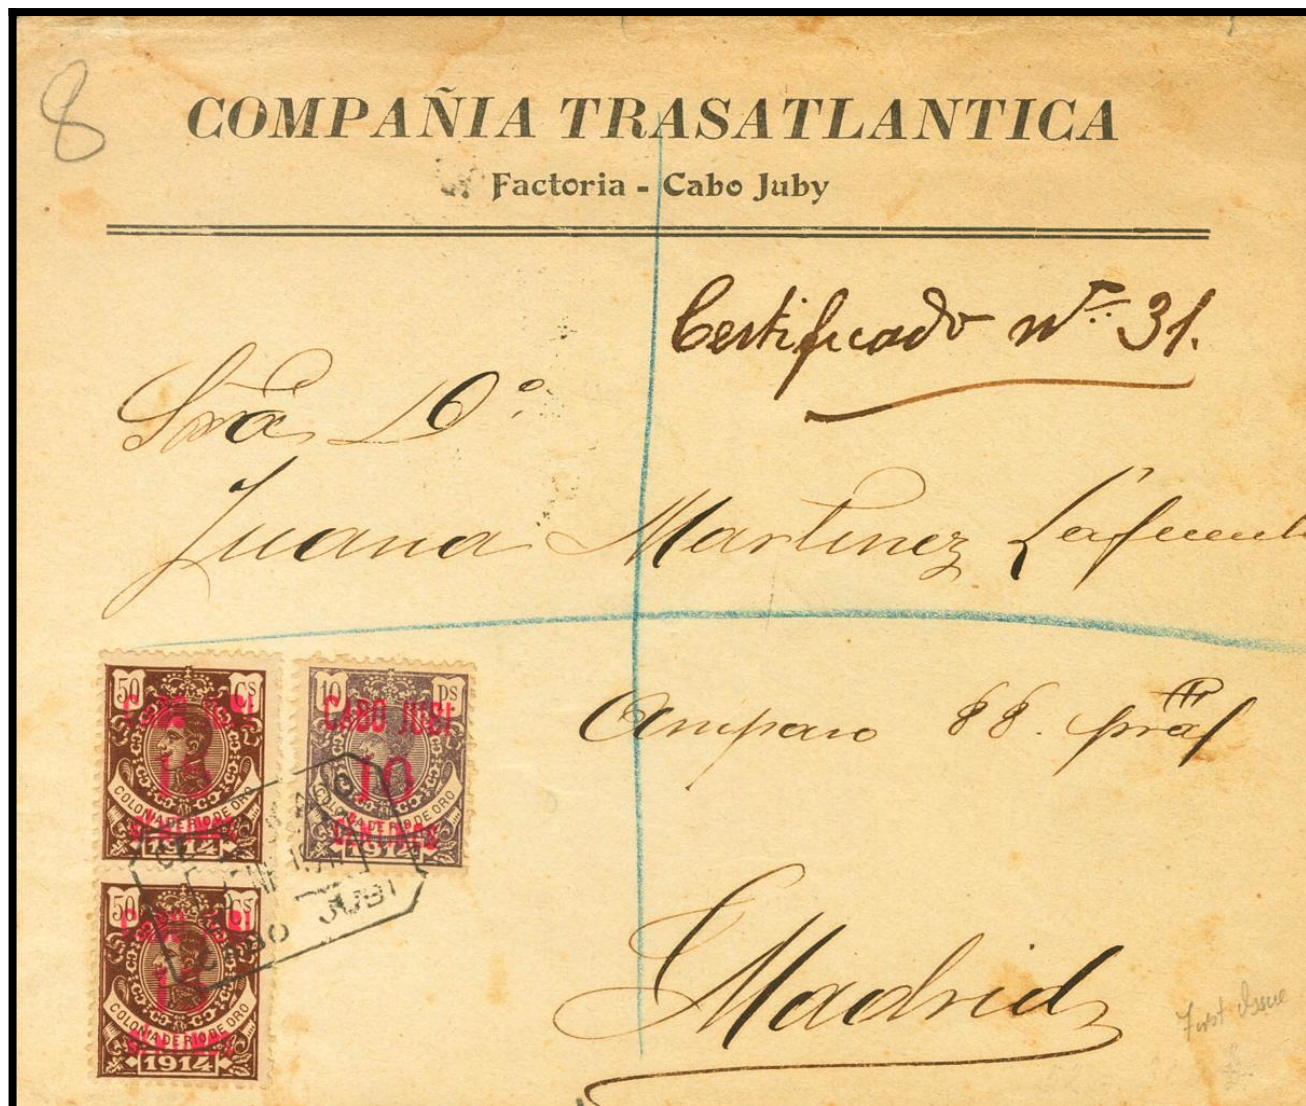 8
COMPAÑIA TRASATLANTICA
Factoria - Cabo Juby
Certificado nº 31.
Sra Dª
Juana Martinez Lafuente
Amparo 88. pral
Madrid
50 Cs
CABO JUBI
COLONIA DE RIO DE ORO
1914
10 Ps
CABO JUBI
10
CENTIMOS
COLONIA DE RIO DE ORO
1914
CABO JUBI
50 Cs
CABO JUBI
COLONIA DE RIO DE ORO
1914
First Issue